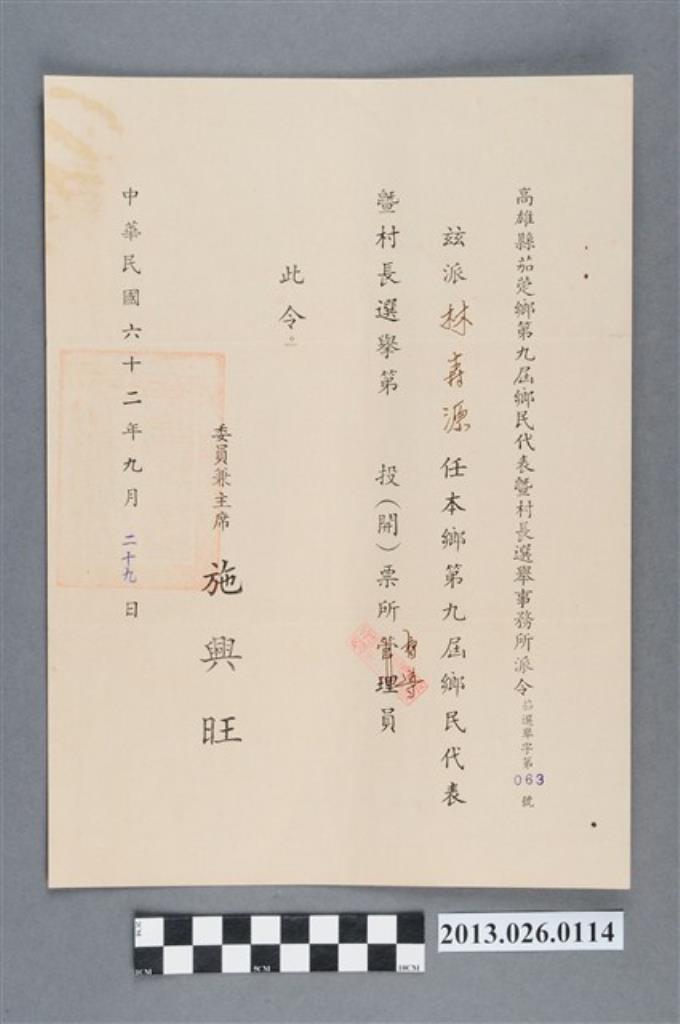 高雄縣茄萣鄉第九屆鄉民代表暨村長選舉事務所派令茄選舉字第063號
茲派林壽源任本鄉第九屆鄉民代表
暨村長選舉第　投(開)票所管理員
督導
此令。
委員兼主席 施興旺
中華民國六十二年九月二十九日
1CM 5CM 10CM
2013.026.0114